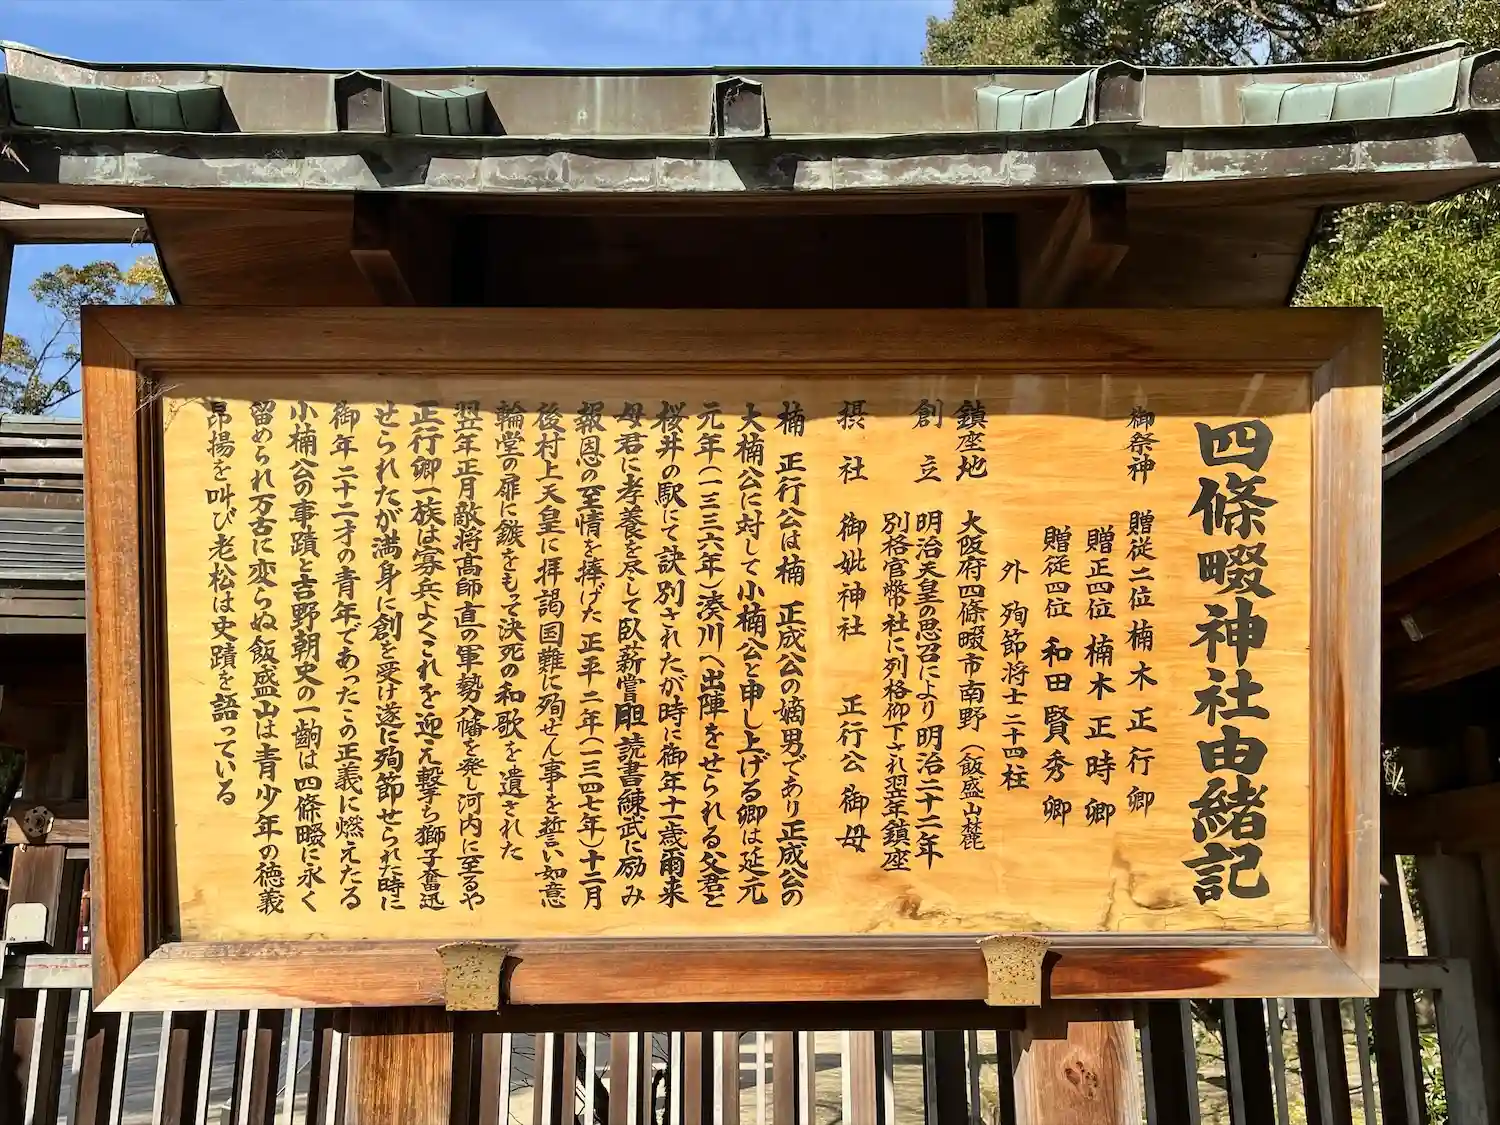 四條畷神社由緒記
御祭神 贈従二位 楠木正行卿
贈正四位 楠木正時卿
贈従四位 和田賢秀卿
外 殉節将士二十四柱
鎮座地 大阪府四條畷市南野（飯盛山麓
創立 明治天皇の思召により明治二十二年
別格官幣社に列格仰下され翌年鎮座
摂社 御妣神社 正行公御母
楠 正行公は楠 正成公の嫡男であり正成公の
大楠公に対して小楠公と申し上げる卿は延元
元年（一三三六年）湊川へ出陣をせられる父君と
桜井の駅にて訣別されたが時に御年十一歳爾来
母君に孝養を尽して臥薪嘗胆読書練武に励み
報恩の至情を捧げた 正平二年（一三四七年）十二月
後村上天皇に拝謁国難に殉せん事を誓い如意
輪堂の扉に鏃をもって決死の和歌を遺された
翌年正月敵将高師直の軍勢八幡を発し河内に至るや
正行卿一族は寡兵よくこれを迎え撃ち獅子奮迅
せられたが満身に創を受け遂に殉節せられた時に
御年二十二才の青年であったこの正義に燃えたる
小楠公の事蹟と吉野朝史の一齣は四條畷に永く
留められ万古に変らぬ飯盛山は青少年の徳義
昂揚を叫び老松は史蹟を語っている